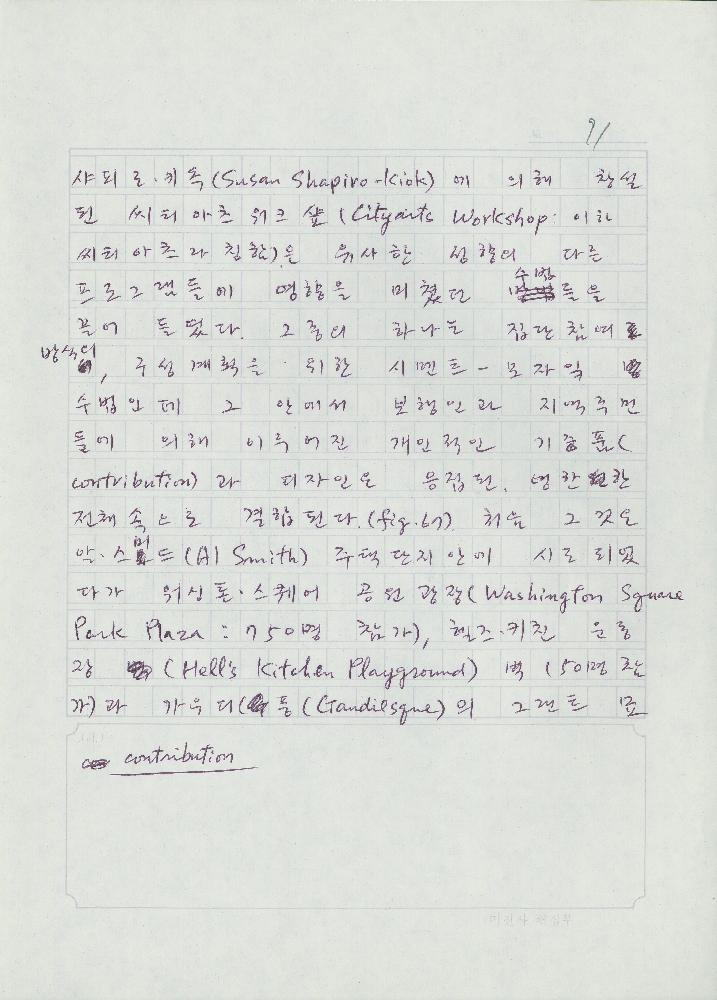 91
샤피로·키옥(Susan Shapiro-Kiok)에 의해 창설
된 씨티아츠 워크샾(Cityarts Workshop: 이하
씨티아츠라 칭함)은 유사한 성향의 다른
프로그램들에 영향을 미쳤던 수법들을
끌어 들였다. 그 중의 하나는 집단참여
방식의, 구성계획을 위한 시멘트-모자익
수법인데 그 안에서 보행인과 지역주민
들에 의해 이루어진 개인적인 기증품(
contribution)과 디자인은 응집된,
전체 속으로 결합된다.(fig.67) 처음 그것은
알·스미드(Al Smith) 주택단지안에 시도되었
다가 워싱톤·스퀘어 공원광장(Washington Square
Park Plaza: 750명 참가), 헬즈·키친 운동
장 (Hell's Kitchen Playground) 벽 (50명 참
가)과 가우디풍(Gaudiesque)의 그랜트 묘
contribution
미진사 편집부